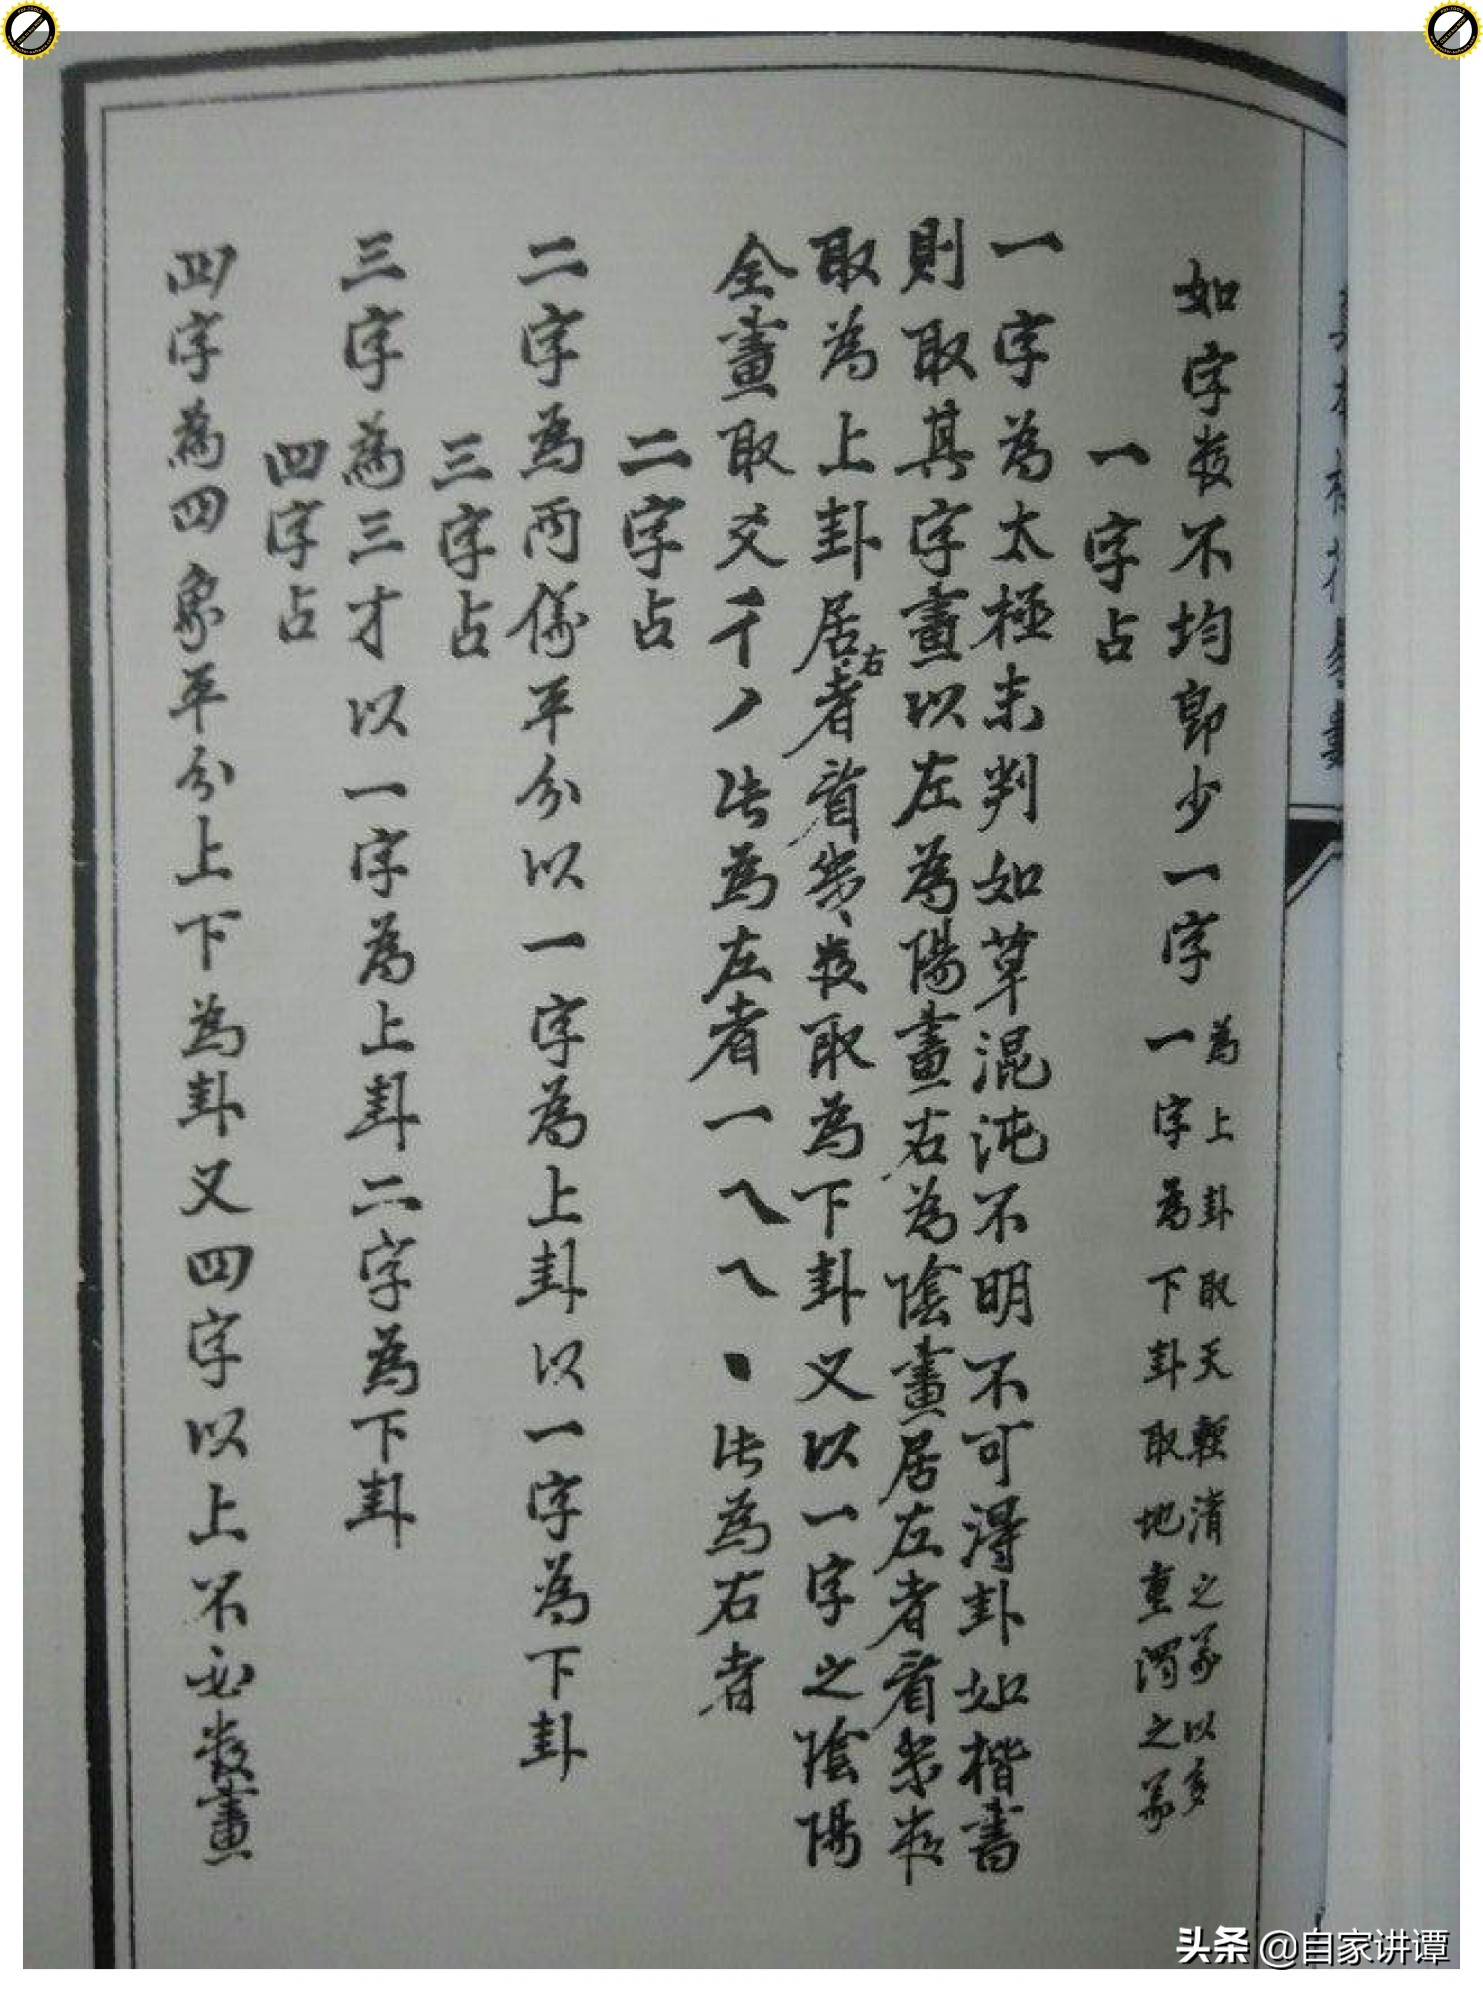 如字数不均即少一字為上卦取天輕清之象以多
一字為下卦取地重濁之象
一字占
一字為太極未判如草混沌不明不可得卦如楷書
則取其字畫以左為陽畫右為陰畫居左者看幾数
取為上卦居右者看幾数取為下卦又以一字之陰陽
全畫取爻彳丿此為左者一乀乀丶此為右者
二字占
二字為両儀平分以一字為上卦以一字為下卦
三字占
三字為三才以一字為上卦二字為下卦
四字占
四字為四象平分上下為卦又四字以上不必数畫
头条 @自家讲谭